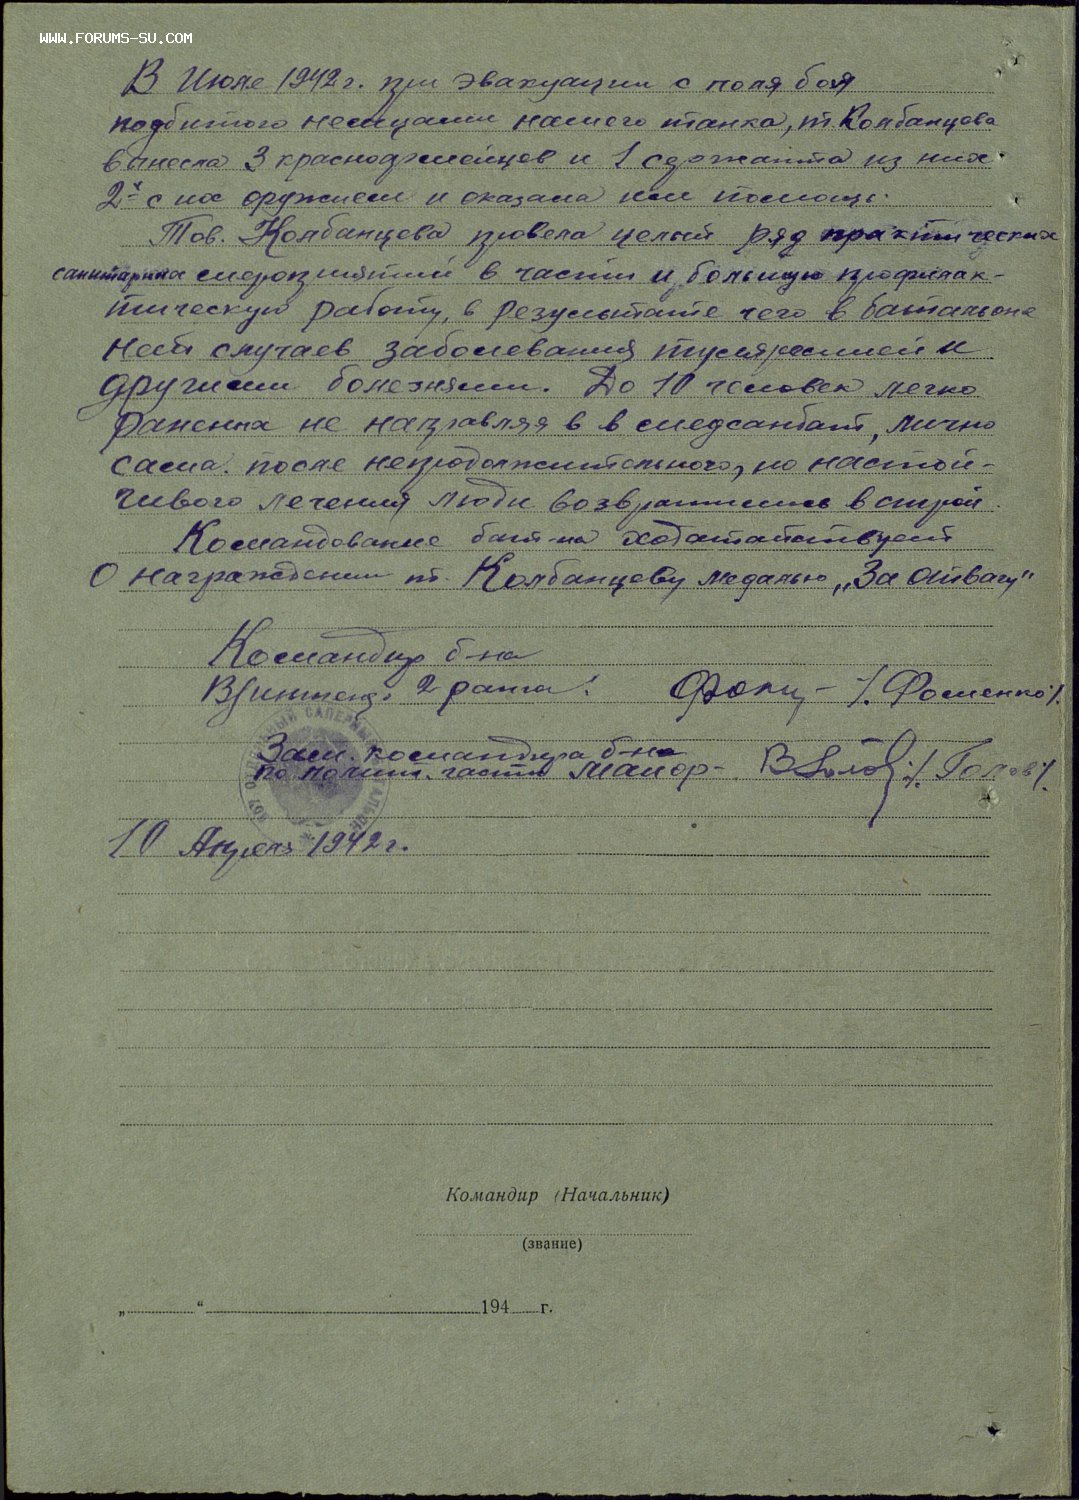 WWW.FORUMS-SU.COM
В Июле 1942 г. при эвакуации с поля боя
подбитого немцами нашего танка, т. Колбанцева
вынесла 3 красноармейцев и 1 сержанта из них
2х с их оружием и оказала им помощь.
Тов. Колбанцева провела целый ряд практических
санитарных мероприятий в части и большую профилак-
тическую работу, в результате чего в батальоне
нет случаев заболевания туляремией и
другими болезнями. До 10 человек легко
раненых не направляя в в медсанбат, лично
сама. после непродолжительного, но настой-
чивого лечения люди возвратились в строй.
Командование бат-на ходатайствует
О награждении т. Колбанцеву медалью „За отвагу"
Командир б-на
В/инженер 2 ранга: /. Фоменко /.
Зам. командира б-на
по полит. части майор - /. Голов /.
ОТДЕЛЬНЫЙ САПЕРНЫЙ
10 Апреля 1942 г.
Командир (Начальник)
(звание)
„ “ 194 г.